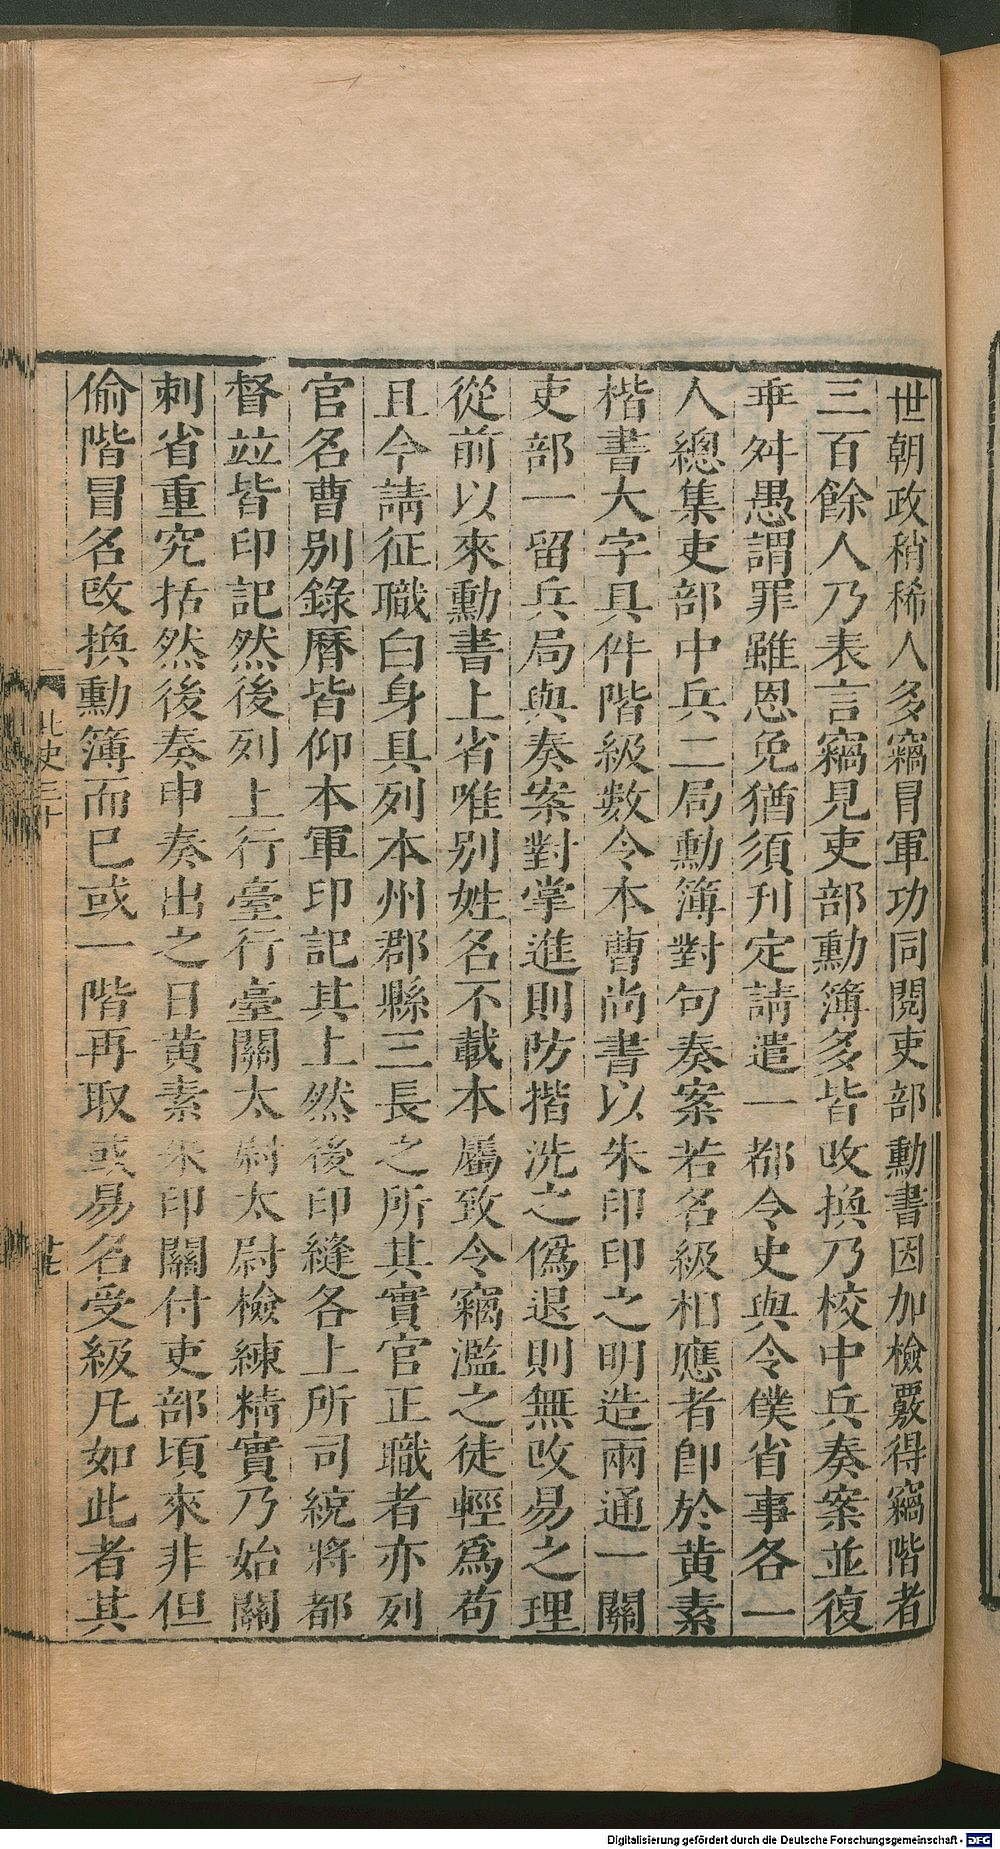 世朝政稍稀人多竊冒軍功同閱吏部勳書因加檢覈得竊階者
三百餘人乃表言竊見吏部勳簿多皆改換乃校中兵奏案並復
乖舛愚謂罪雖恩免猶須刋定請遣一都令史與令僕省事各一
人總集吏部中兵二局勳簿對句奏案若名級相應者即於黄素
楷書大字具件階級數令本曹尚書以朱印印之明造兩通一關
吏部一留兵局與奏案對掌進則防揩洗之僞退則無改易之理
從前以來勳書上省唯别姓名不載本屬致令竊濫之徒輕爲苟
且今請征職白身具列本州郡縣三長之所其實官正職者亦列
官名曹别錄曆皆仰本軍印記其上然後印縫各上所司統將都
督並皆印記然後列上行臺行臺關太尉太尉檢練精實乃始關
刺省重究括然後奏申奏出之日黄素朱印關付吏部頃來非但
偷階冒名改換勳簿而已或一階再取或易名受級凡如此者其
北史三十
廿七
Digitalisierung gefördert durch die Deutsche Forschungsgemeinschaft - DFG